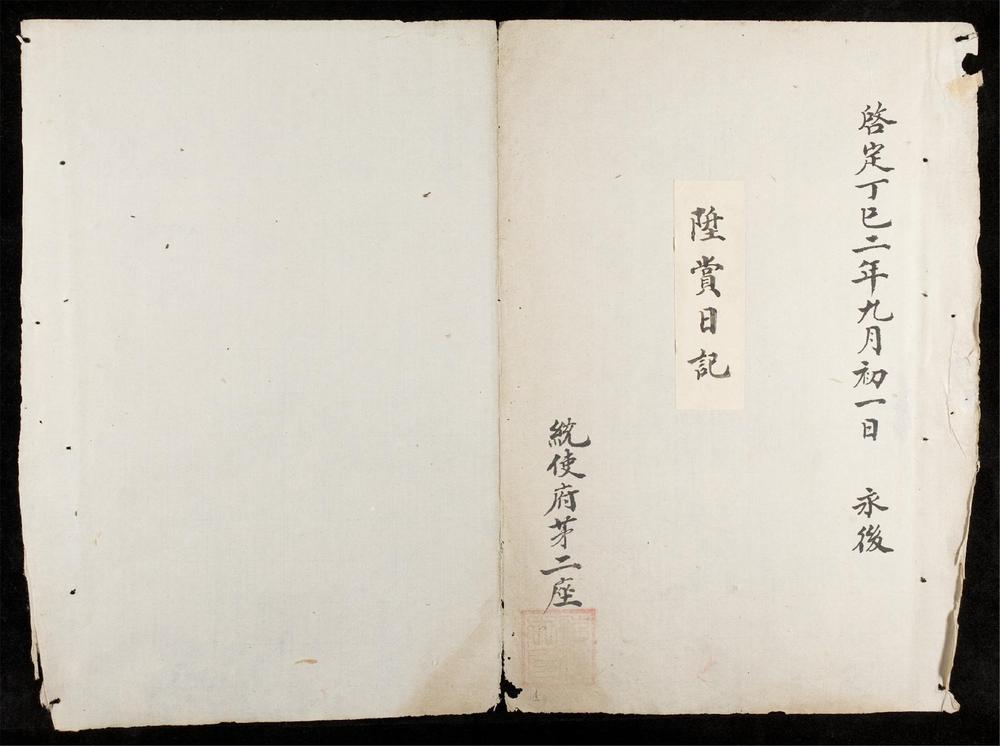 啓定丁巳二年九月初一日 永後
陞賞日記
統使府苐二座